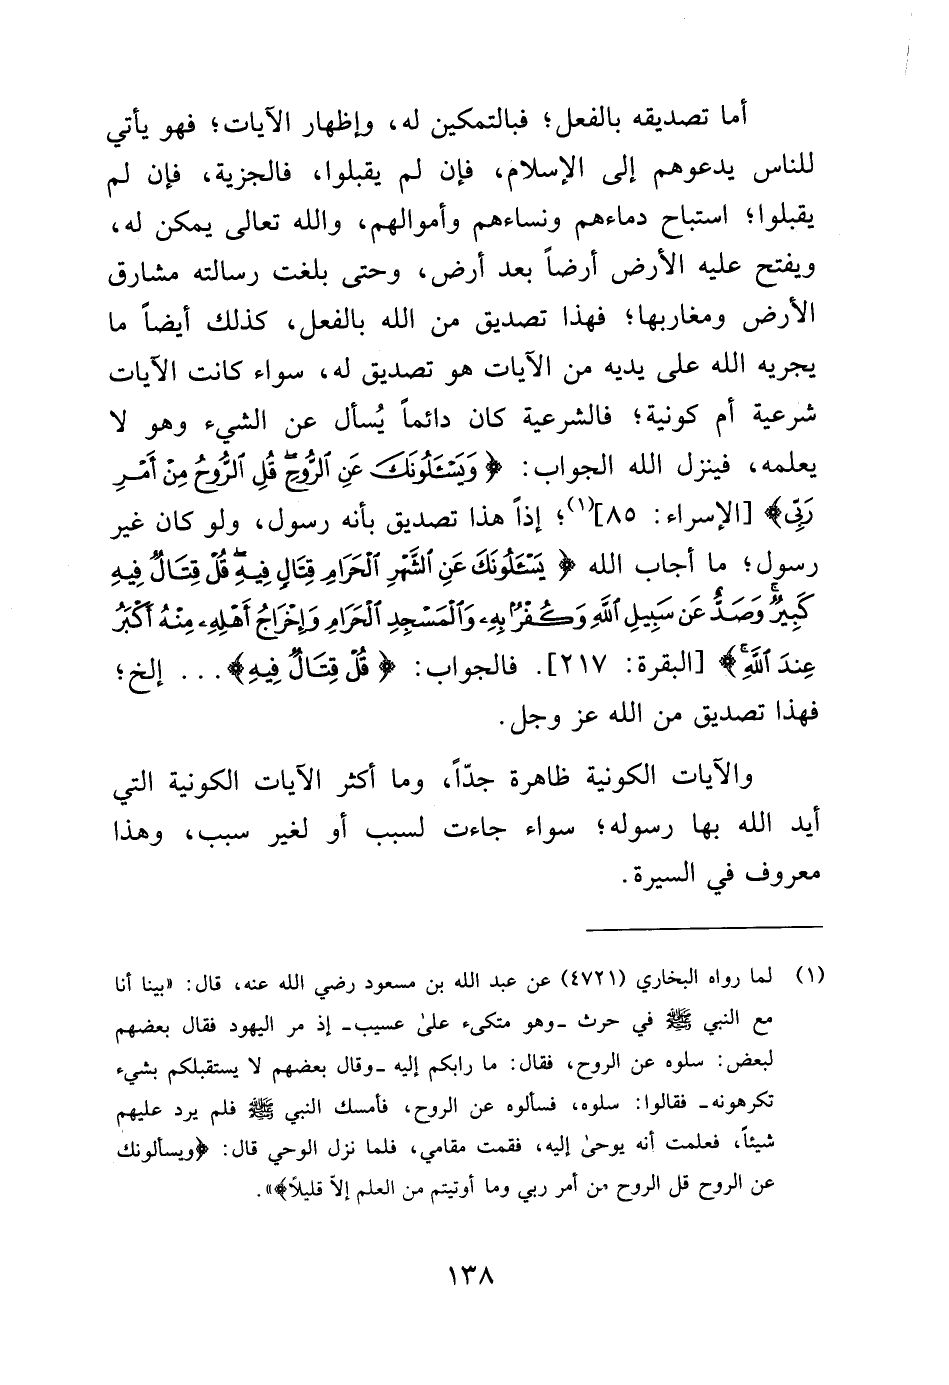 أما تصديقه بالفعل؛ فبالتمكين له، وإظهار الآيات؛ فهو يأتي
للناس يدعوهم إلى الإسلام، فإن لم يقبلوا، فالجزية، فإن لم
يقبلوا؛ استباح دماءهم ونساءهم وأموالهم، والله تعالى يمكن له،
ويفتح عليه الأرض أرضاً بعد أرض، وحتى بلغت رسالته مشارق
الأرض ومغاربها؛ فهذا تصديق من الله بالفعل، كذلك أيضاً ما
يجريه الله على يديه من الآيات هو تصديق له، سواء كانت الآيات
شرعية أم كونية؛ فالشرعية كان دائماً يُسأل عن الشيء وهو لا
يعلمه، فينزل الله الجواب: ﴿وَيَسْـَٔلُونَكَ عَنِ ٱلرُّوحِۖ قُلِ ٱلرُّوحُ مِنْ أَمْرِ
رَبِّى﴾ [الإسراء: ٨٥]<sup>(١)</sup>؛ إذاً هذا تصديق بأنه رسول، ولو كان غير
رسول؛ ما أجاب الله ﴿يَسْـَٔلُونَكَ عَنِ ٱلشَّهْرِ ٱلْحَرَامِ قِتَالٍ فِيهِۖ قُلْ قِتَالٌ فِيهِ
كَبِيرٌۚ وَصَدٌّ عَن سَبِيلِ ٱللَّهِ وَكُفْرٌۢ بِهِۦ وَٱلْمَسْجِدِ ٱلْحَرَامِ وَإِخْرَاجُ أَهْلِهِۦ مِنْهُ أَكْبَرُ
عِندَ ٱللَّهِۚ﴾ [البقرة: ٢١٧]. فالجواب: ﴿قُلْ قِتَالٌ فِيهِ﴾... إلخ؛
فهذا تصديق من الله عز وجل.
والآيات الكونية ظاهرة جدّاً، وما أكثر الآيات الكونية التي
أيد الله بها رسوله؛ سواء جاءت لسبب أو لغير سبب، وهذا
معروف في السيرة.
(١) لما رواه البخاري (٤٧٢١) عن عبد الله بن مسعود رضي الله عنه، قال: «بينا أنا
مع النبي ﷺ في حرث ـ وهو متكىء علىٰ عسيب ـ إذ مر اليهود فقال بعضهم
لبعض: سلوه عن الروح، فقال: ما رابكم إليه ـ وقال بعضهم لا يستقبلكم بشيء
تكرهونه ـ فقالوا: سلوه، فسألوه عن الروح، فأمسك النبي ﷺ فلم يرد عليهم
شيئاً، فعلمت أنه يوحىٰ إليه، فقمت مقامي، فلما نزل الوحي قال: ﴿ويسألونك
عن الروح قل الروح من أمر ربي وما أوتيتم من العلم إلاّ قليلاً﴾».
١٣٨